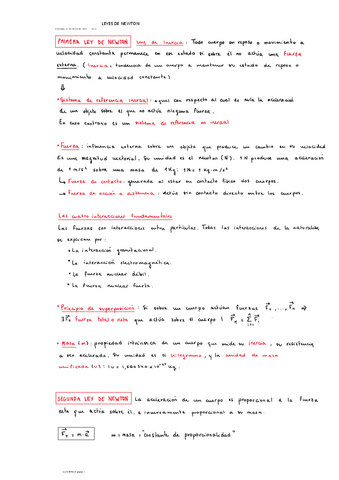 LEYES DE NEWTON
PRIMERA LEY DE NEWTON Ley de Inercia: Todo cuerpo en reposo o movimiento a
velocidad constante permanece en ese estado si sobre él no actúa una fuerza
externa. (Inercia: tendencia de un cuerpo a mantener su estado de reposo o
movimiento a velocidad constante)
⇓
• Sistema de referencia inercial: aquel con respecto al cual es nula la aceleración
de un objeto sobre el que no actúe ninguna fuerza.
En caso contrario es un sistema de referencia no inercial
• Fuerza: influencia externa sobre un objeto que produce un cambio en su velocidad
Es una magnitud vectorial. Su unidad es el newton (N). 1N produce una aceleración
de 1 m/s² sobre una masa de 1Kg: 1N = 1 Kg·m/s²
↳ Fuerza de contacto: generada al estar en contacto físico dos cuerpos.
↳ Fuerza de acción a distancia: Actúa sin contacto directo entre los cuerpos.
Las cuatro interacciones fundamentales
Las fuerzas son interacciones entre partículas. Todas las interacciones de la naturaleza
se explican por:
• La interacción gravitacional.
• La interacción electromagnética.
• La fuerza nuclear débil.
• La fuerza nuclear fuerte.
• Principio de superposición: Si sobre un cuerpo actúan fuerzas
fuerza total o neta que actúa sobre el cuerpo
• Masa (m): propiedad intrínseca de un cuerpo que mide su inercia, su resistencia
a ser acelerado. Su unidad es el kilogramo, y la unidad de masa
unificada (u): 1u =
SEGUNDA LEY DE NEWTON La aceleración de un cuerpo es proporcional a la fuerza
neta que actúa sobre él, e inversamente proporcional a su masa.
m = masa = "constante de proporcionalidad"